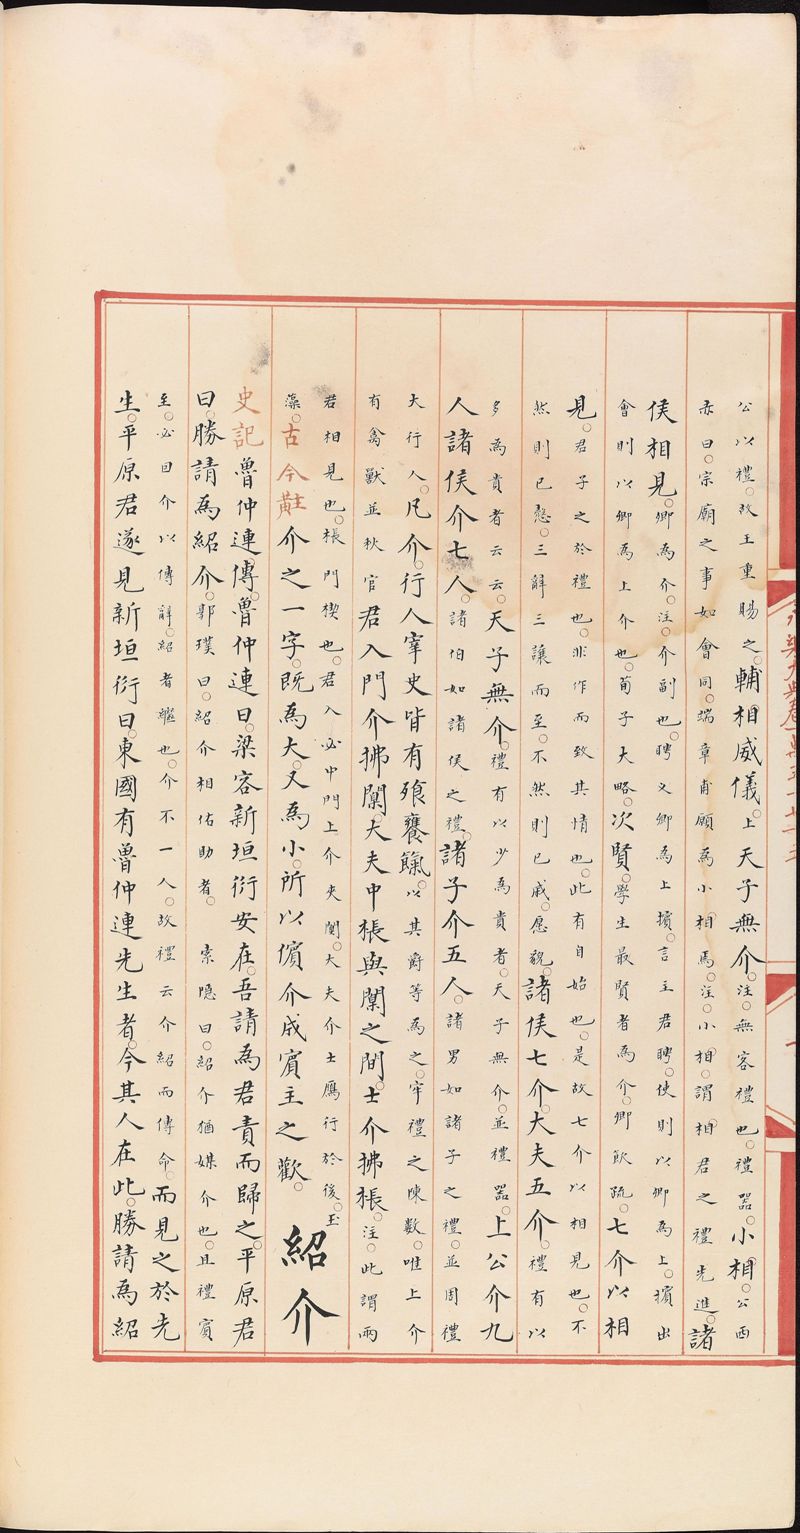 永樂大典卷一萬五千七十五
公以禮。故王重賜之。輔相威儀。上天子無介。注。無客禮也。禮器。小相。公西
赤曰。宗廟之事如會同。端章甫願為小相焉。注。小相。謂相君之禮先進。諸
侯相見。卿為介。注。介副也。聘义卿為上擯。言主君聘。使則以卿為上。擯出
會則以卿為上介也。荀子大略。次賢。學生最賢者為介。卿飲疏。七介以相
見。君子之於禮也。非作而致其情也。此有自始也。是故七介以相見也。不
然則已慤。三辭三讓而至。不然則已戚。愿貌。諸侯七介。大夫五介。禮有以
多為貴者云云。天子無介。禮有以少為貴者。天子無介。並禮器。上公介九
人諸侯介七人。諸伯如諸侯之禮。諸子介五人。諸男如諸子之禮。並周禮
大行人。凡介。行人宰史皆有飱饔餼。以其爵等為之。牢禮之陳數。唯上介
有禽獸並秋官君入門介拂闑。大夫中棖與闑之間。士介拂棖。注。此謂兩
君相見也。棖門楔也。君入必中門上介夾闑。大夫介士鴈行於後。玉
藻。古今黈介之一字。既為大。又為小。所以儐介成賓主之歡。紹介
史記魯仲連傳。魯仲連曰。梁客新垣衍安在。吾請為君責而歸之。平原君
曰。勝請為紹介。郭璞曰。紹介相佑助者。索隱曰。紹介猶媒介也。且禮賓
至。必因介以傳辭。紹者繼也。介不一人。故禮云介紹而傳命。而見之於先
生。平原君遂見新垣衍曰。東國有魯仲連先生者。今其人在此。勝請為紹